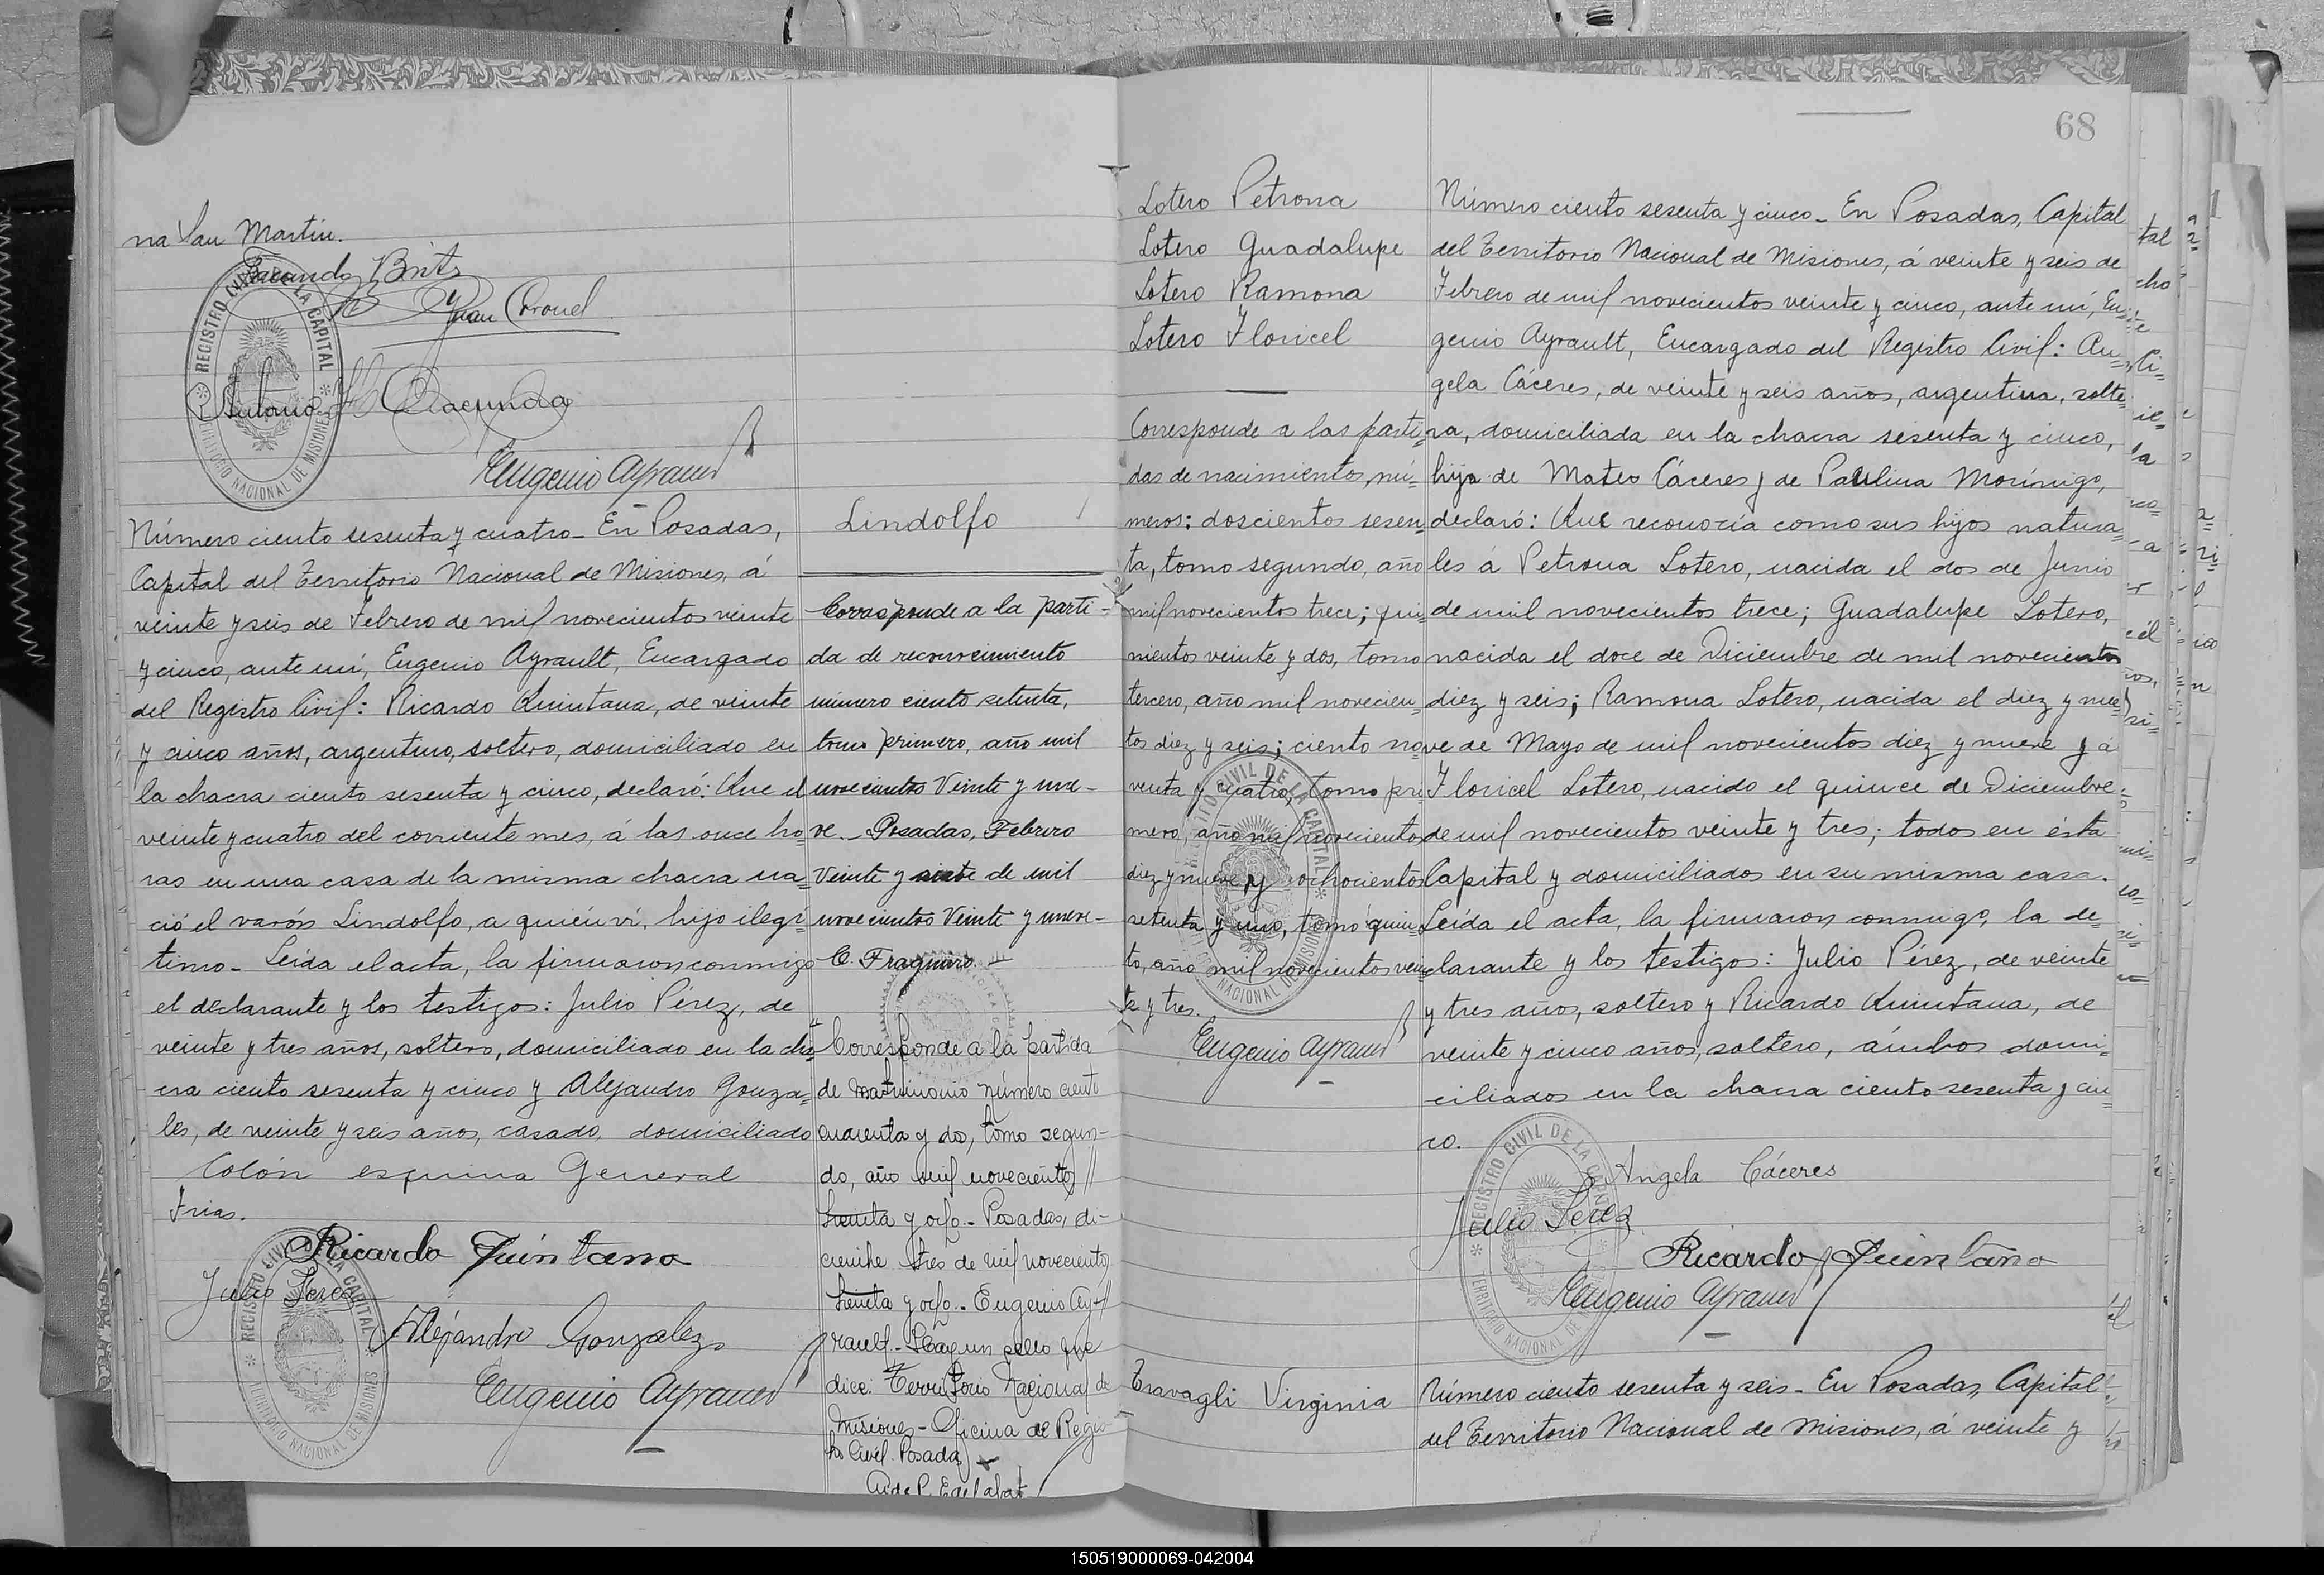 na San Martin.
Facundo Britz
Juan Coronel
REGISTRO CIVIL DE LA CAPITAL
TERRITORIO NACIONAL DE MISIONES
Antonio
Eugenio Ayrault
Número ciento sesenta y cuatro_ En Posadas,
Capital del Territorio Nacional de Misiones, á
veinte y seis de Febrero de mil novecientos veinte
y cinco, ante mí, Eugenio Ayrault, Encargado
del Registro Civil: Ricardo Quintana, de veinte
y cinco años, argentino, soltero, domiciliado en
la chacra ciento sesenta y cinco, declaró: Que el
veinte y cuatro del corriente mes, á las once ho=
ras en una casa de la misma chacra na=
ció el varón Lindolfo, a quién ví, hijo ilegí
timo_ Leída el acta, la firmaron conmigo
el declarante y los testigos: Julio Pérez, de
veinte y tres años, soltero, domiciliado en la cha=
cra ciento sesenta y cinco y Alejandro Gonza=
les, de veinte y seis años, casado, domiciliado
Colón esquina General
Frias.
Ricardo Quintana
Julio Perez
Alejandro Gonzalez
Eugenio Ayrault
REGISTRO CIVIL DE LA CAPITAL
TERRITORIO NACIONAL DE MISIONES
Lindolfo
Corresponde a la parti-
da de reconocimiento
número ciento setenta,
tomo primero, año mil
novecientos Veinte y nue-
ve_ Posadas, Febrero
Veinte y siete de mil
novecientos Veinte y nueve-
C. Fragueiro
Corresponde a la partida
de matrimonio número ciento
cuarenta y do, tomo segun-
do, año mil novecientos //
treinta y ocho.- Posadas, di-
ciembre tres de mil novecientos
treinta y ocho.- Eugenio Ay-//
rault.- Hay un sello que
dice: Territorio Nacional de
Misiones - Oficina de Regis
tro Civil. Posadas
68
Lotero Petrona
Lotero Guadalupe
Lotero Ramona
Lotero Floricel
Corresponde a las parti=
das de nacimientos, nú=
meros: doscientos sesen
ta, tomo segundo, año
mil novecientos trece; qui=
nientos veinte y dos, tomo
tercero, año mil novecien=
tos diez y seis; ciento no
venta y cuatro, tomo pri
mero, año mil novecientos
diez y nueve y ochocientos
setenta y uno, tomo quin=
to, año mil novecientos vein
te y tres.
Eugenio Ayrault
REGISTRO CIVIL DE LA CAPITAL
TERRITORIO NACIONAL DE MISIONES
Número ciento sesenta y cinco_ En Posadas, Capital
del Territorio Nacional de Misiones, á veinte y seis de
Febrero de mil novecientos veinte y cinco, ante mí, Eu=
genio Ayrault, Encargado del Registro Civil: An=
gela Cáceres, de veinte y seis años, argentina, solte=
ra, domiciliada en la chacra sesenta y cinco,
hija de Mateo Cáceres y de Paulina Morínigo,
declaró: Que reconocía como sus hijos natura=
les á Petrona Lotero, nacida el dos de Junio
de mil novecientos trece; Guadalupe Lotero,
nacida el doce de Diciembre de mil novecientos
diez y seis; Ramona Lotero, nacida el diez y nue=
ve de Mayo de mil novecientos diez y nueve y á
Floricel Lotero, nacido el quince de Diciembre
de mil novecientos veinte y tres; todos en ésta
Capital y domiciliados en su misma casa.
Leída el acta, la firmaron conmigo, la de=
clarante y los testigos: Julio Pérez, de veinte
y tres años, soltero y Ricardo Quintana, de
veinte y cinco años, soltero, ámbos domi=
ciliados en la chacra ciento sesenta y cin=
co.
Angela Cáceres
Julio Perez
Ricardo Quintana
Eugenio Ayrault
REGISTRO CIVIL DE LA CAPITAL
TERRITORIO NACIONAL DE MISIONES
Travagli Virginia
Número ciento sesenta y seis_ En Posadas, Capital
del Territorio Nacional de Misiones, á veinte y
150519000069-042004